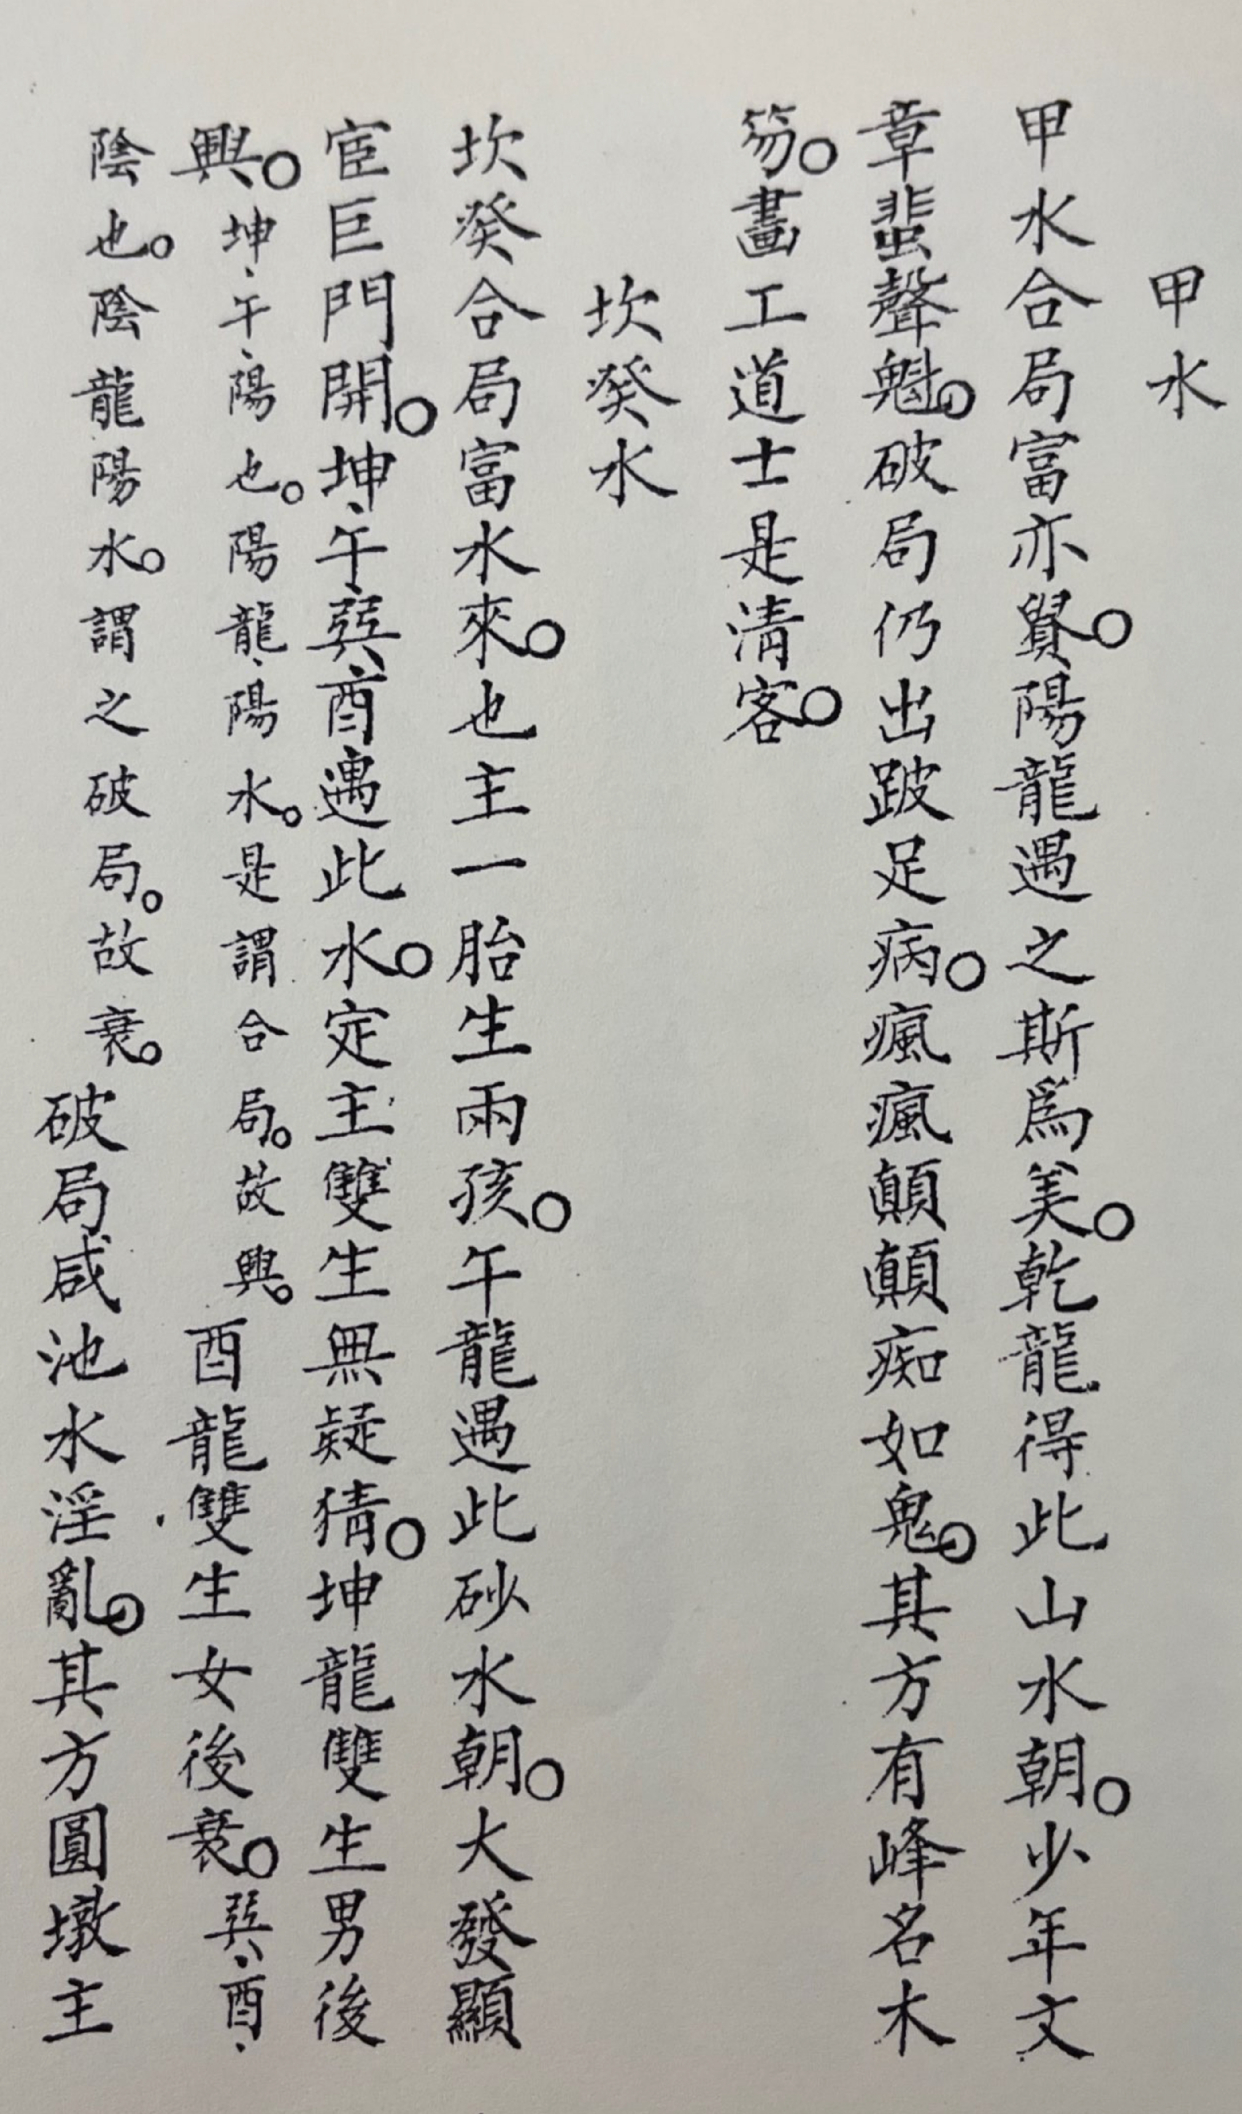 甲水
甲水合局富亦貲。陽龍遇之斯爲美。乾龍得此山水朝。少年文
章蜚聲魁。破局仍出跛足病。瘋瘋顛顛痴如鬼。其方有峰名木
笏。畫工道士是清客。
坎癸水
坎癸合局富水來。也主一胎生兩孩。午龍遇此砂水朝。大發顯
宦巨門開。坤、午、巽、酉遇此水。定主雙生無疑猜。坤龍雙生男後
興。坤、午、陽也。陽龍、陽水。是謂合局。故興。酉龍雙生女後衰。巽、酉、
陰也。陰龍陽水。謂之破局。故衰。破局咸池水淫亂。其方圓墩主